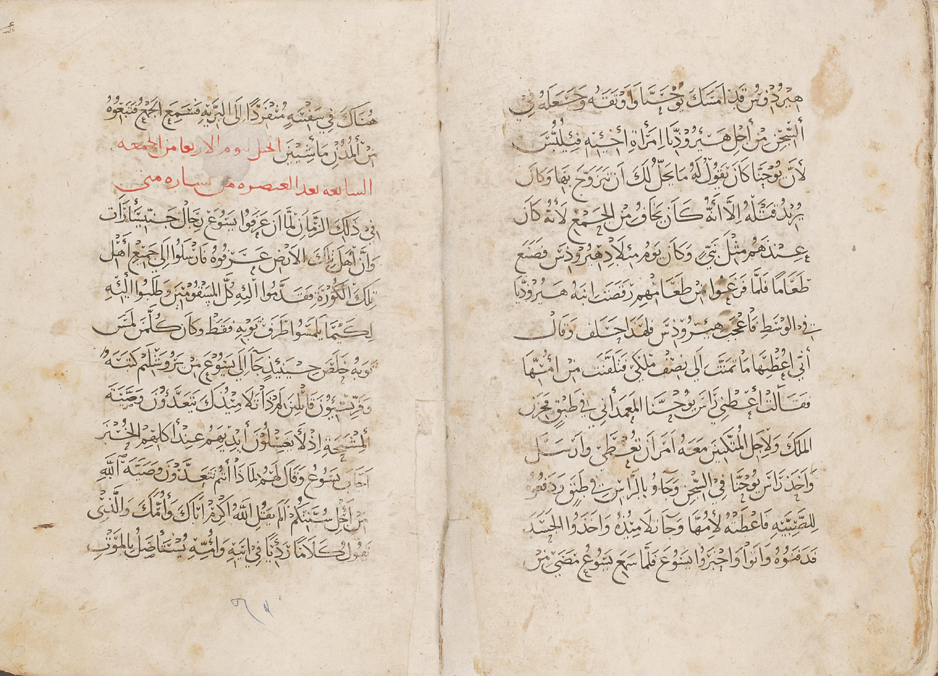 هيرودس قد امسك يوحنا واوثقه وجعله في
السجن من اجل هيروديا امراة اخيه فيلبس
لان يوحنا كان يقول له ما يحل لك ان تتزوج بها وكان
يريد قتله الا انه كان يخاف من الجمع لانه كان
عندهم مثل نبي وكان يوم ميلاد هيرودس فصنع
طعاما فلما فرغوا من طعامهم رقصت ابنة هيروديا
في الوسط فاعجب هيرودس فلهذا حلف وقال
اني اعطيها ما تمنت الى نصف ملكي فتلقنت من امها
فقالت اعطني راس يوحنا المعمداني في طبق فحزن
الملك ولاجل المتكيين معه امر ان تعطى وارسل
واخذ راس يوحنا في السجن وجاو بالراس في طبق ودفعوه
للصبية فاعطته لامها وجا تلاميذه واخذوا الجسد
فدفنوه واتوا واخبروا يسوع فلما سمع يسوع مضى من
هناك في سفينة منفردا الى البرية فسمع الجمع فتبعوه
من المدن ماشيين الحل يوم الاربعا من الجمعه
السابعه بعد العنصره من بشاره متى
في ذلك الزمان لما ان عرفوا يسوع رجال جنيسارات
وان اهل تلك الارض عرفوه فارسلوا الى جميع اهل
تلك الكورة فقدموا اليه كل المسقومين وطلبوا اليه
لكيما يلمسوا طرف ثوبه فقط وكان كلمن لمس
ثوبه خلص حينيذ جا الى يسوع من يروشليم كتبه
وفريسيون قايلين لم ذا تلاميذك يتعدون وصية
المشيخة اذ لا يغسلون ايديهم عند اكلهم الخبز
اجاب يسوع وقال لهم لماذا انتم تتعدون وصية الله
من اجل سنتكم الم يقل الله اكرم اباك وامك والذي
يقول كلاما رديا في ابيه وامه يستقاصل بالموت